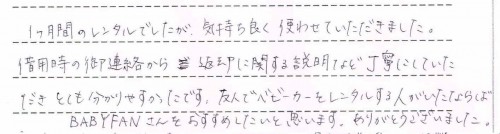 1ヶ月間のレンタルでしたが、気持ち良く使わせていただきました。
借用時の御連絡から返却に関する説明など丁寧にしていた
だきとても分かりやすかったです。友人でベビーカーをレンタルする人がいたならば
BABYFANさんをおすすめしたいと思います。ありがとうございました。